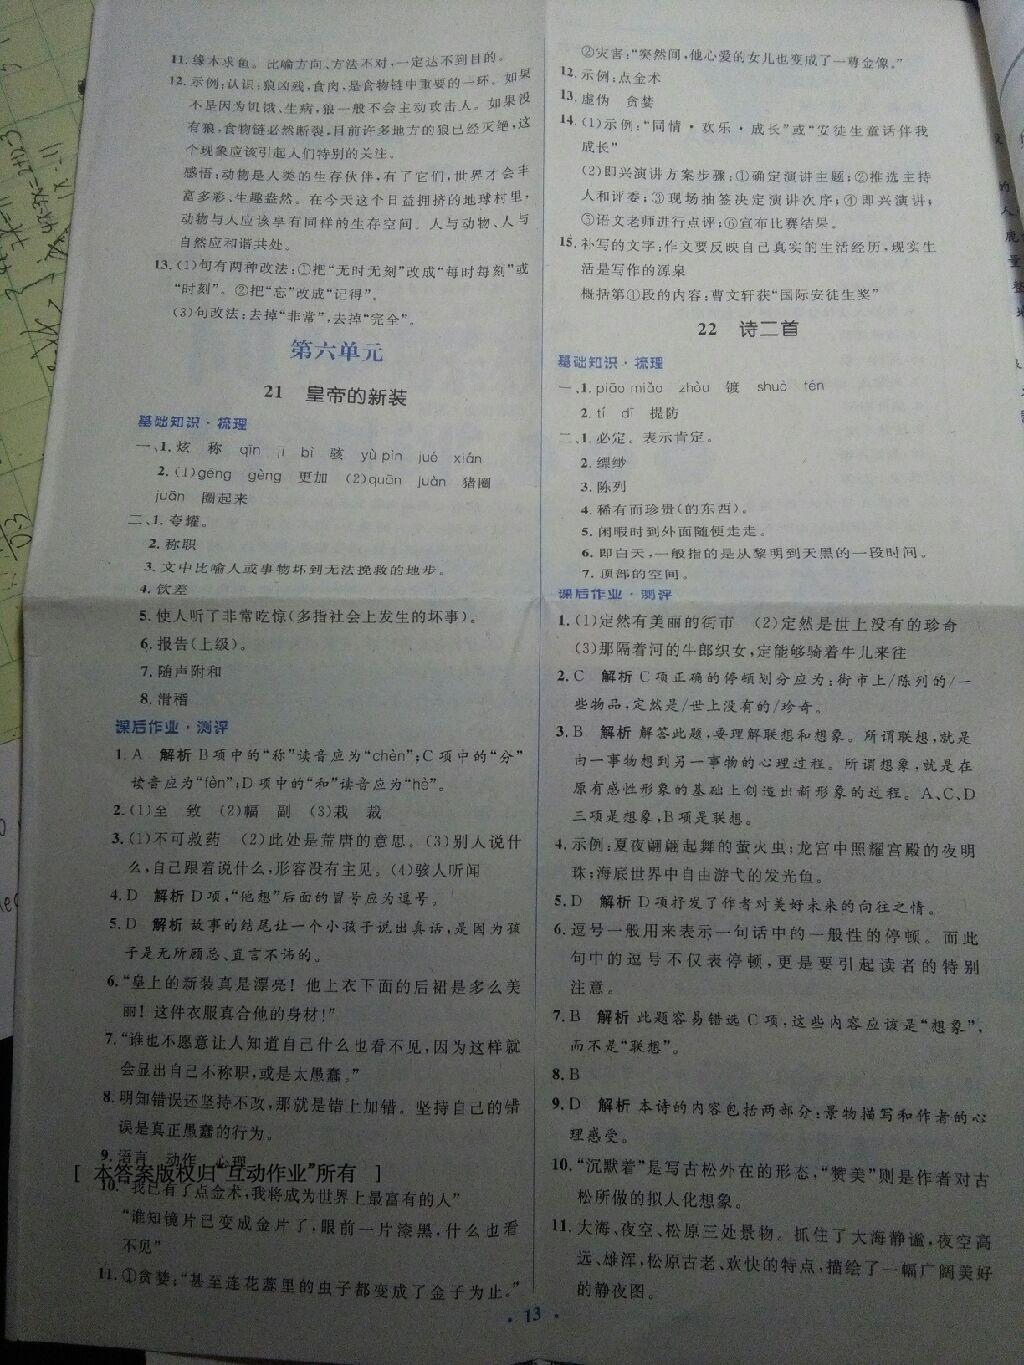 11. 缘木求鱼。比喻方向、方法不对,一定达不到目的。
12. 示例:认识:狼凶残,食肉,是食物链中重要的一环。如果
不是因为饥饿、生病,狼一般不会主动攻击人。如果没
有狼,食物链必然断裂,目前许多地方的狼已经灭绝,这
个现象应该引起人们特别的关注。
感悟:动物是人类的生存伙伴,有了它们,世界才会丰
富多彩、生趣盎然。在今天这个日益拥挤的地球村里,
动物与人应该享有同样的生存空间。人与动物、人与
自然应和谐共处。
13. (1)句有两种改法:①把“无时无刻”改成“每时每刻”或
“时刻”。②把“忘”改成“记得”。
(3)句改法:去掉“非常”,去掉“完全”。
第六单元
21 皇帝的新装
基础知识·梳理
一、1. 炫 称 qīn jī bì 骇 yù pìn jué xián
2. (1)gēng gèng 更加 (2)quān juàn 猪圈
juān 圈起来
二、1. 夸耀。
2. 称职
3. 文中比喻人或事物坏到无法挽救的地步。
4. 钦差
5. 使人听了非常吃惊(多指社会上发生的坏事)。
6. 报告(上级)。
7. 随声附和
8. 滑稽
课后作业·测评
1. A 解析 B项中的“称”读音应为“chèn”;C项中的“分”
读音应为“fèn”;D项中的“和”读音应为“hè”。
2. (1)至 致 (2)幅 副 (3)栽 裁
3. (1)不可救药 (2)此处是荒唐的意思。(3)别人说什
么,自己跟着说什么,形容没有主见。(4)骇人听闻
4. D 解析 D项,“他想”后面的冒号应为逗号。
5. D 解析 故事的结尾让一个小孩子说出真话,是因为孩
子是无所顾忌、直言不讳的。
6. “皇上的新装真是漂亮!他上衣下面的后裙是多么美
丽!这件衣服真合他的身材!”
7. “谁也不愿意让人知道自己什么也看不见,因为这样就
会显出自己不称职,或是太愚蠢。”
8. 明知错误还坚持不改,那就是错上加错。坚持自己的错
误是真正愚蠢的行为。
9. 语言 动作 心理
[ 本答案版权归“互动作业”所有 ]
10. “我已有了点金术,我将成为世界上最富有的人”
“谁知镜片已变成金片了,眼前一片漆黑,什么也看
不见”
11. ①贪婪:“甚至连花蕊里的虫子都变成了金子为止。”
②灾害:“突然间,他心爱的女儿也变成了一尊金像。”
12. 示例:点金术
13. 虚伪 贪婪
14. (1)示例:“同情·欢乐·成长”或“安徒生童话伴我
成长”
(2)即兴演讲方案步骤:①确定演讲主题;②推选主持
人和评委;③现场抽签决定演讲次序;④即兴演讲;
⑤语文老师进行点评;⑥宣布比赛结果。
15. 补写的文字:作文要反映自己真实的生活经历,现实生
活是写作的源泉
概括第①段的内容:曹文轩获“国际安徒生奖”
22 诗二首
基础知识·梳理
一、1. piāo miǎo zhòu 镀 shuò tén
2. tí dī 提防
二、1. 必定。表示肯定。
2. 缥缈
3. 陈列
4. 稀有而珍贵(的东西)。
5. 闲暇时到外面随便走走。
6. 即白天,一般指的是从黎明到天黑的一段时间。
7. 顶部的空间。
课后作业·测评
1. (1)定然有美丽的街市 (2)定然是世上没有的珍奇
(3)那隔着河的牛郎织女,定能够骑着牛儿来往
2. C 解析 C项正确的停顿划分应为:街市上/陈列的/一
些物品,定然是/世上没有的/珍奇。
3. B 解析 解答此题,要理解联想和想象。所谓联想,就是
由一事物想到另一事物的心理过程。所谓想象,就是在
原有感性形象的基础上创造出新形象的过程。A、C、D
三项是想象,B项是联想。
4. 示例:夏夜翩翩起舞的萤火虫;龙宫中照耀宫殿的夜明
珠;海底世界中自由游弋的发光鱼。
5. D 解析 D项抒发了作者对美好未来的向往之情。
6. 逗号一般用来表示一句话中的一般性的停顿。而此
句中的逗号不仅表停顿,更是要引起读者的特别
注意。
7. B 解析 此题容易错选C项,这些内容应该是“想象”,
而不是“联想”。
8. B
9. D 解析 本诗的内容包括两部分:景物描写和作者的心
理感受。
10. “沉默着”是写古松外在的形态,“赞美”则是作者对古
松所做的拟人化想象。
11. 大海、夜空、松原三处景物。抓住了大海静谧,夜空高
远、雄浑,松原古老、欢快的特点,描绘了一幅广阔美好
的静夜图。
· 13 ·